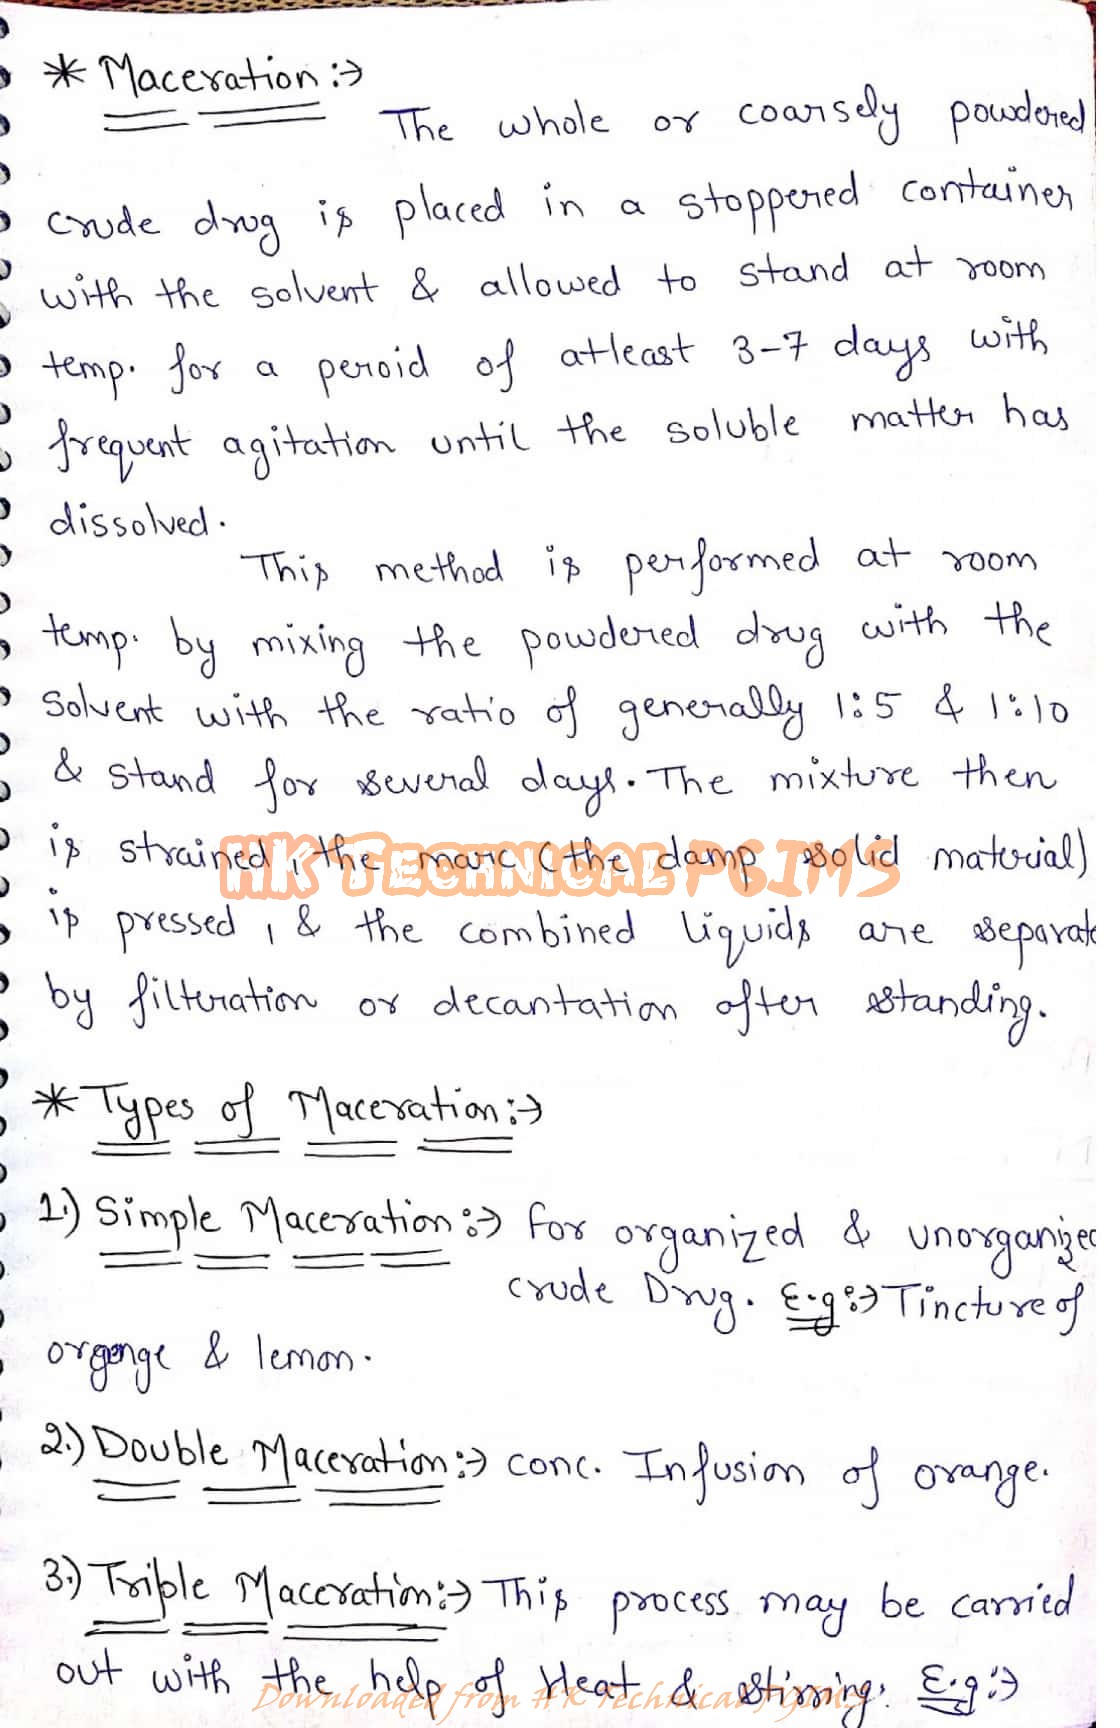 * Maceration :→
The whole or coarsely powdered
crude drug is placed in a stoppered container
with the solvent & allowed to stand at room
temp. for a peroid of atleast 3-7 days with
frequent agitation until the soluble matter has
dissolved.
This method is performed at room
temp. by mixing the powdered drug with the
solvent with the ratio of generally 1:5 & 1:10
& stand for several days. The mixture then
is strained, the marc (the damp solid material)
HK Technical PGIMS
is pressed, & the combined liquids are separate
by filteration or decantation after standing.
* Types of Maceration :→
1.) Simple Maceration :→ for organized & unorganized
crude Drug. E.g :→ Tincture of
orgenge & lemon.
2.) Double Maceration :→ conc. Infusion of orange.
3.) Triple Maceration :→ This process may be carried
out with the help of Heat & stirring. E.g :→
Downloaded from HK Technical PGIMS